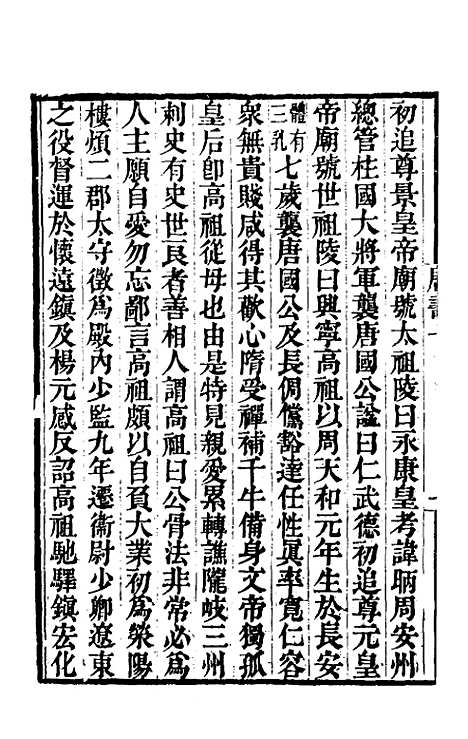 初追尊景皇帝廟號太祖陵曰永康皇考諱昞周安州
總管柱國大將軍襲唐國公諡曰仁武德初追尊元皇
帝廟號世祖陵曰興寧高祖以周天和元年生於長安
體有三乳七歲襲唐國公及長倜儻豁達任性眞率寬仁容
衆無貴賤咸得其歡心隋受禪補千牛備身文帝獨孤
皇后卽高祖從母也由是特見親愛累轉譙隴岐三州
刺史有史世良者善相人謂高祖曰公骨法非常必爲
人主願自愛勿忘鄙言高祖頗以自負大業初爲滎陽
樓煩二郡太守徵爲殿內少監九年遷衞尉少卿遼東
之役督運於懷遠鎮及楊元感反詔高祖馳驛鎮宏化